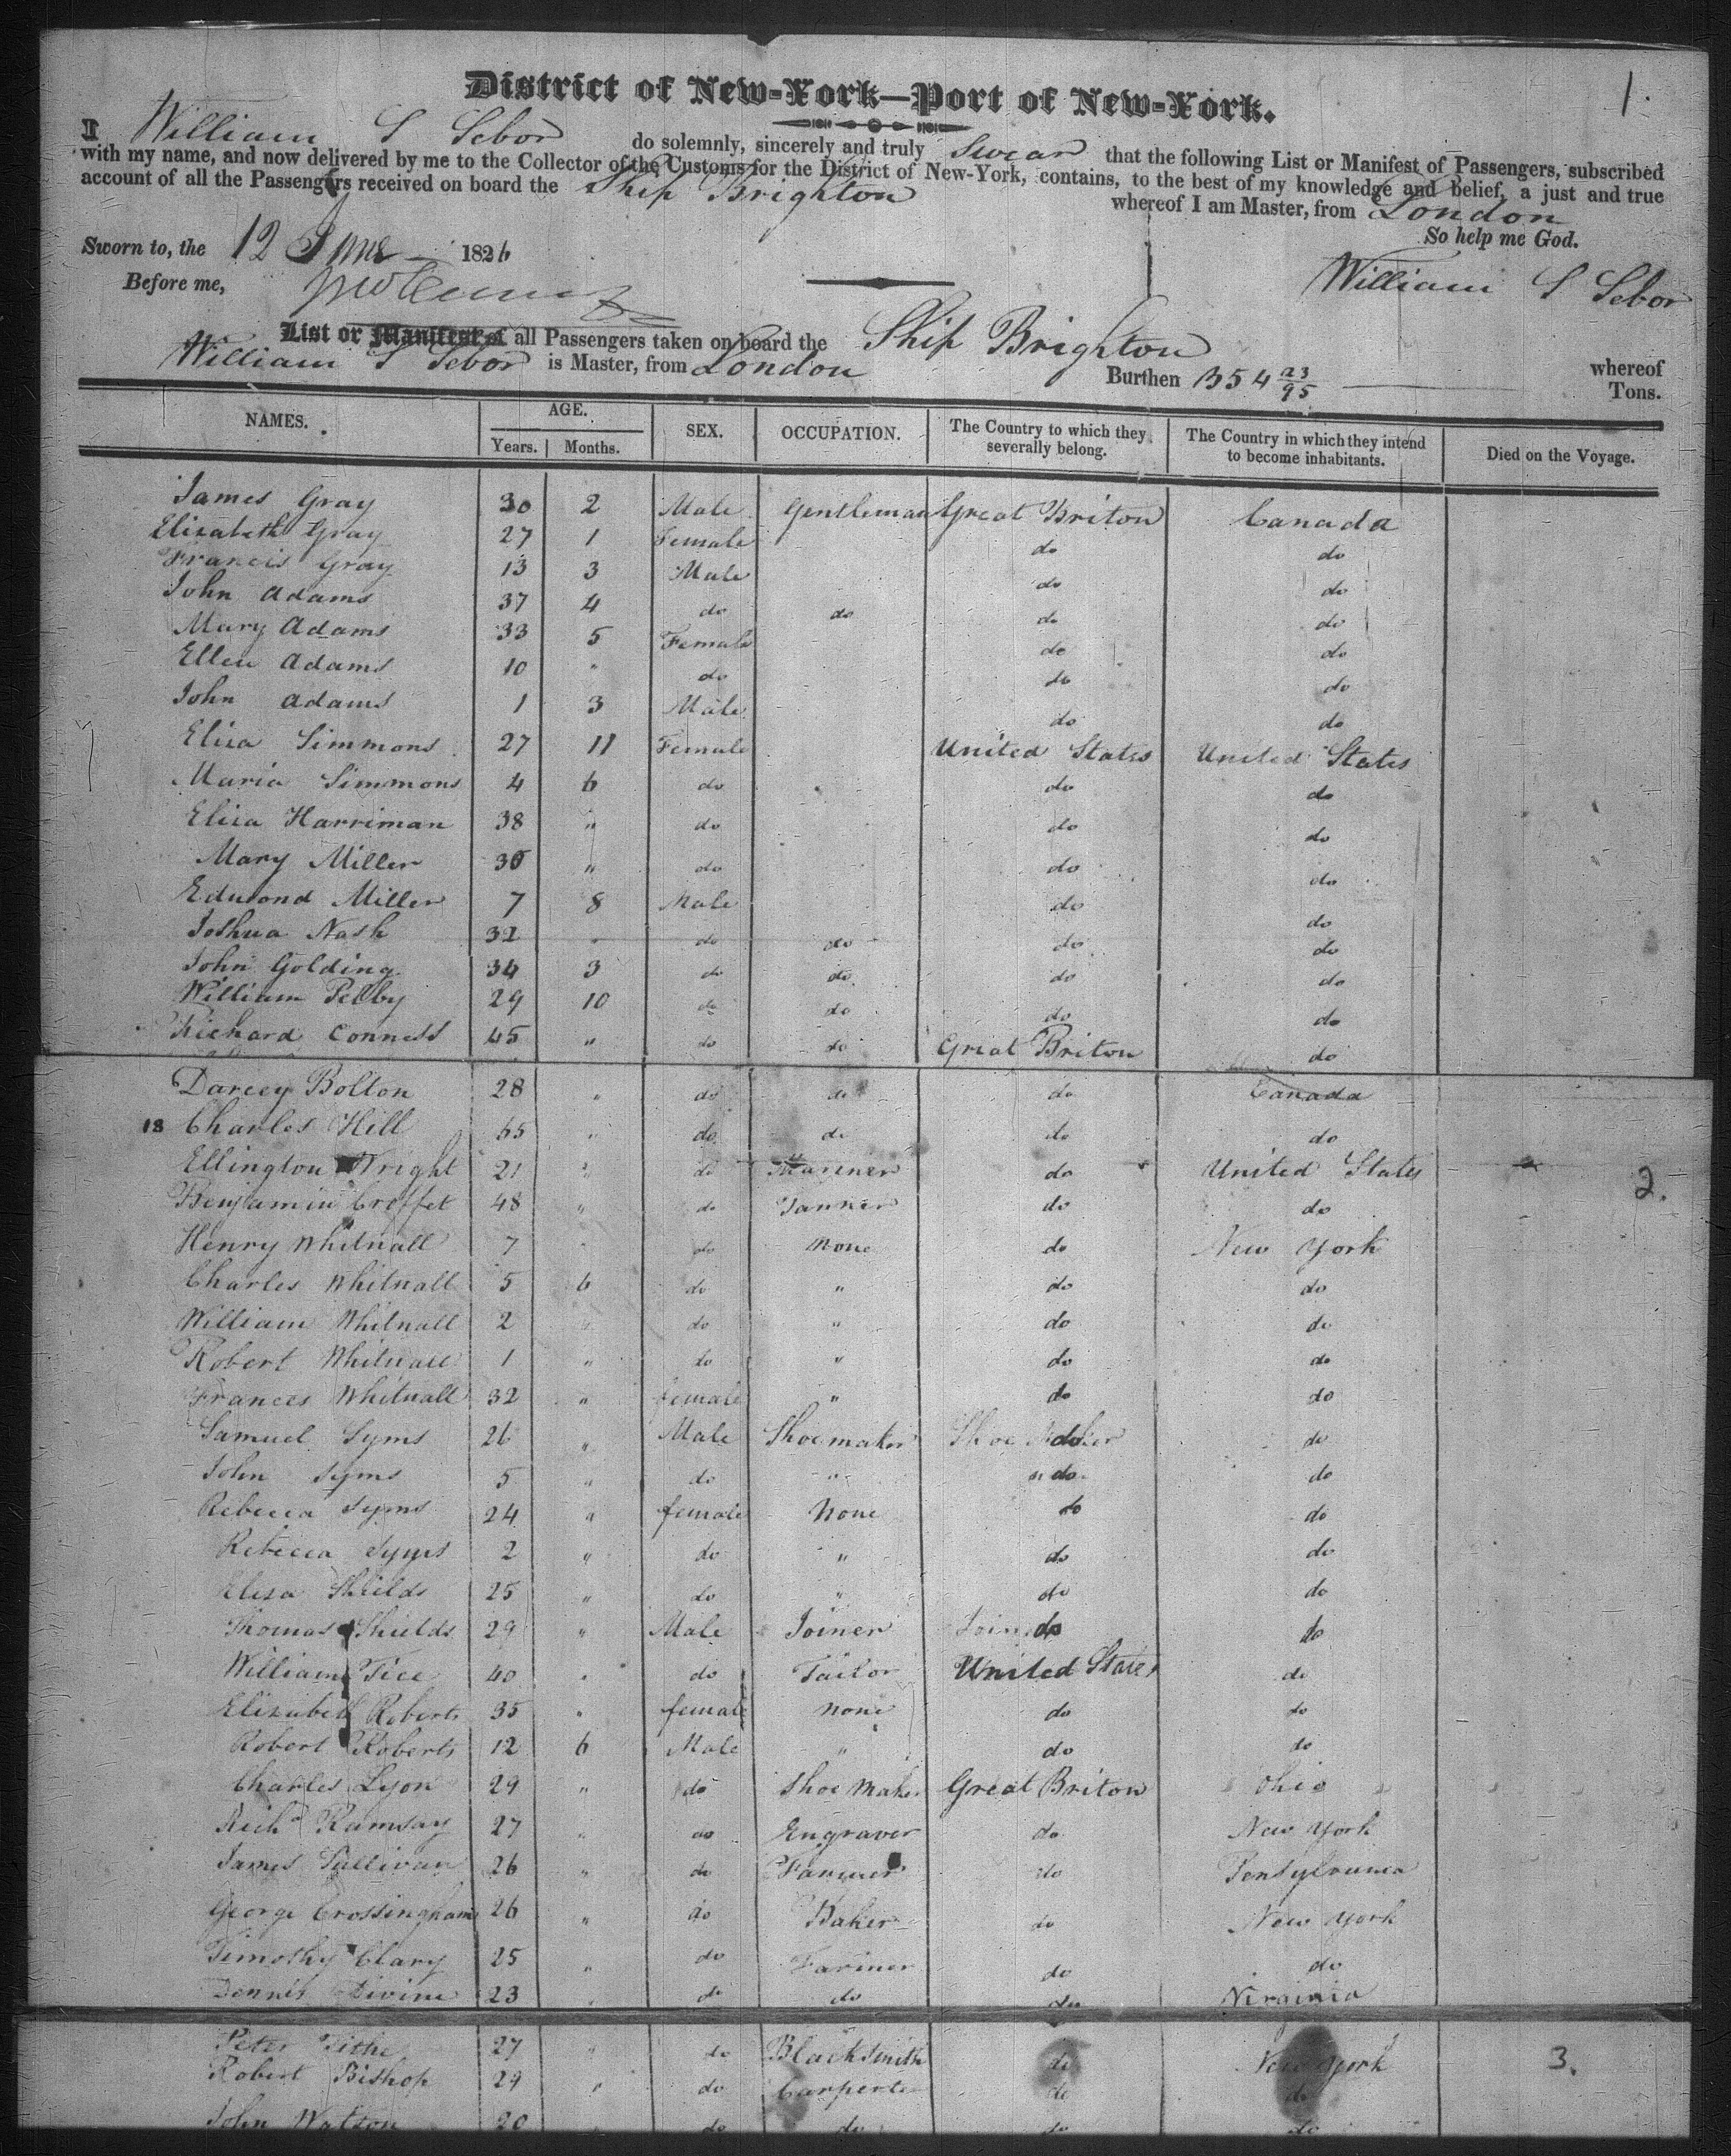 1.
District of New-York—Port of New-York.
I William S Sebor do solemnly, sincerely and truly Swear that the following List or Manifest of Passengers, subscribed
with my name, and now delivered by me to the Collector of the Customs for the District of New-York, contains, to the best of my knowledge and belief, a just and true
account of all the Passengers received on board the Ship Brighton whereof I am Master, from London
So help me God.
Sworn to, the 12 June 1826
Before me,
William S Sebor
List or Manifest of all Passengers taken on board the Ship Brighton whereof
William S Sebor is Master, from London Burthen 354 23/95 Tons.
NAMES. AGE. SEX. OCCUPATION. The Country to which they severally belong. The Country in which they intend to become inhabitants. Died on the Voyage.
Years. Months.
James Gray 30 2 Male Gentleman Great Briton Canada
Elizabeth Gray 27 1 Female do do
Francis Gray 13 3 Male do do
John Adams 37 4 do do do do
Mary Adams 33 5 Female do do
Ellen Adams 10 " do do do
John Adams 1 3 Male do do
Eliza Simmons 27 11 Female United States United States
Maria Simmons 4 6 do do do
Eliza Harriman 38 " do do do
Mary Miller 30 " do do do
Edmond Miller 7 8 Male do do
Joshua Nash 32 " do do do do
John Golding 34 3 do do do do
William Pelby 29 10 do do do do
Richard Conness 45 " do do Great Briton do
Darcey Bolton 28 " do do do Canada
18 Charles Hill 65 " do do do do
Ellington Wright 21 " do Mariner do United States
2.
Benjamin Croffet 48 " do Tanner do do
Henry Whitnall 7 " do None do New York
Charles Whitnall 5 6 do " do do
William Whitnall 2 " do " do do
Robert Whitnall 1 " do " do do
Frances Whitnall 32 " female " do do
Samuel Syms 26 " Male Shoemaker do do
John Syms 5 " do " do do
Rebecca Syms 24 " female None do do
Rebecca Syms 2 " do " do do
Eliza Shields 25 " do " do do
Thomas Shields 29 " Male Joiner do do
William Tice 40 " do Tailor United States do
Elizabeth Roberts 35 " female None do do
Robert Roberts 12 6 Male " do do
Charles Lyon 29 " do Shoe Maker Great Briton Ohio
Richd Ramsay 27 " do Engraver do New York
James Sullivan 26 " do Farmer do Pensylvania
George Crossingham 26 " do Baker do New York
Timothy Clary 25 " do Farmer do do
Dennis Divine 23 " do do do Virginia
Peter Tithe 27 " do Blacksmith do New York
3.
Robert Bishop 29 " do Carpenter do do
John Watson 20 " do do do do